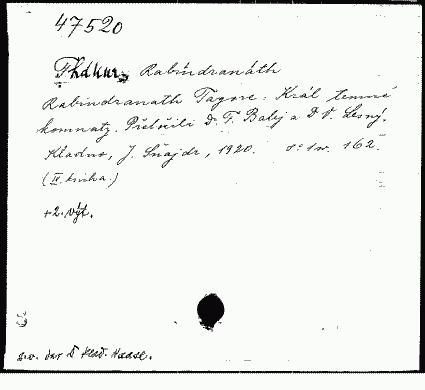 47520
Thákur, Rabíndranáth
Rabindranath Tagore: Král temné
komnaty. Přeložili Dr. F. Balej a Dr V. Lesný.
Kladno, J. Šnajdr, 1920. 8° 1 sv. 162.
(IV. kniha.)
+2. výt.
s.v. dar Haase.